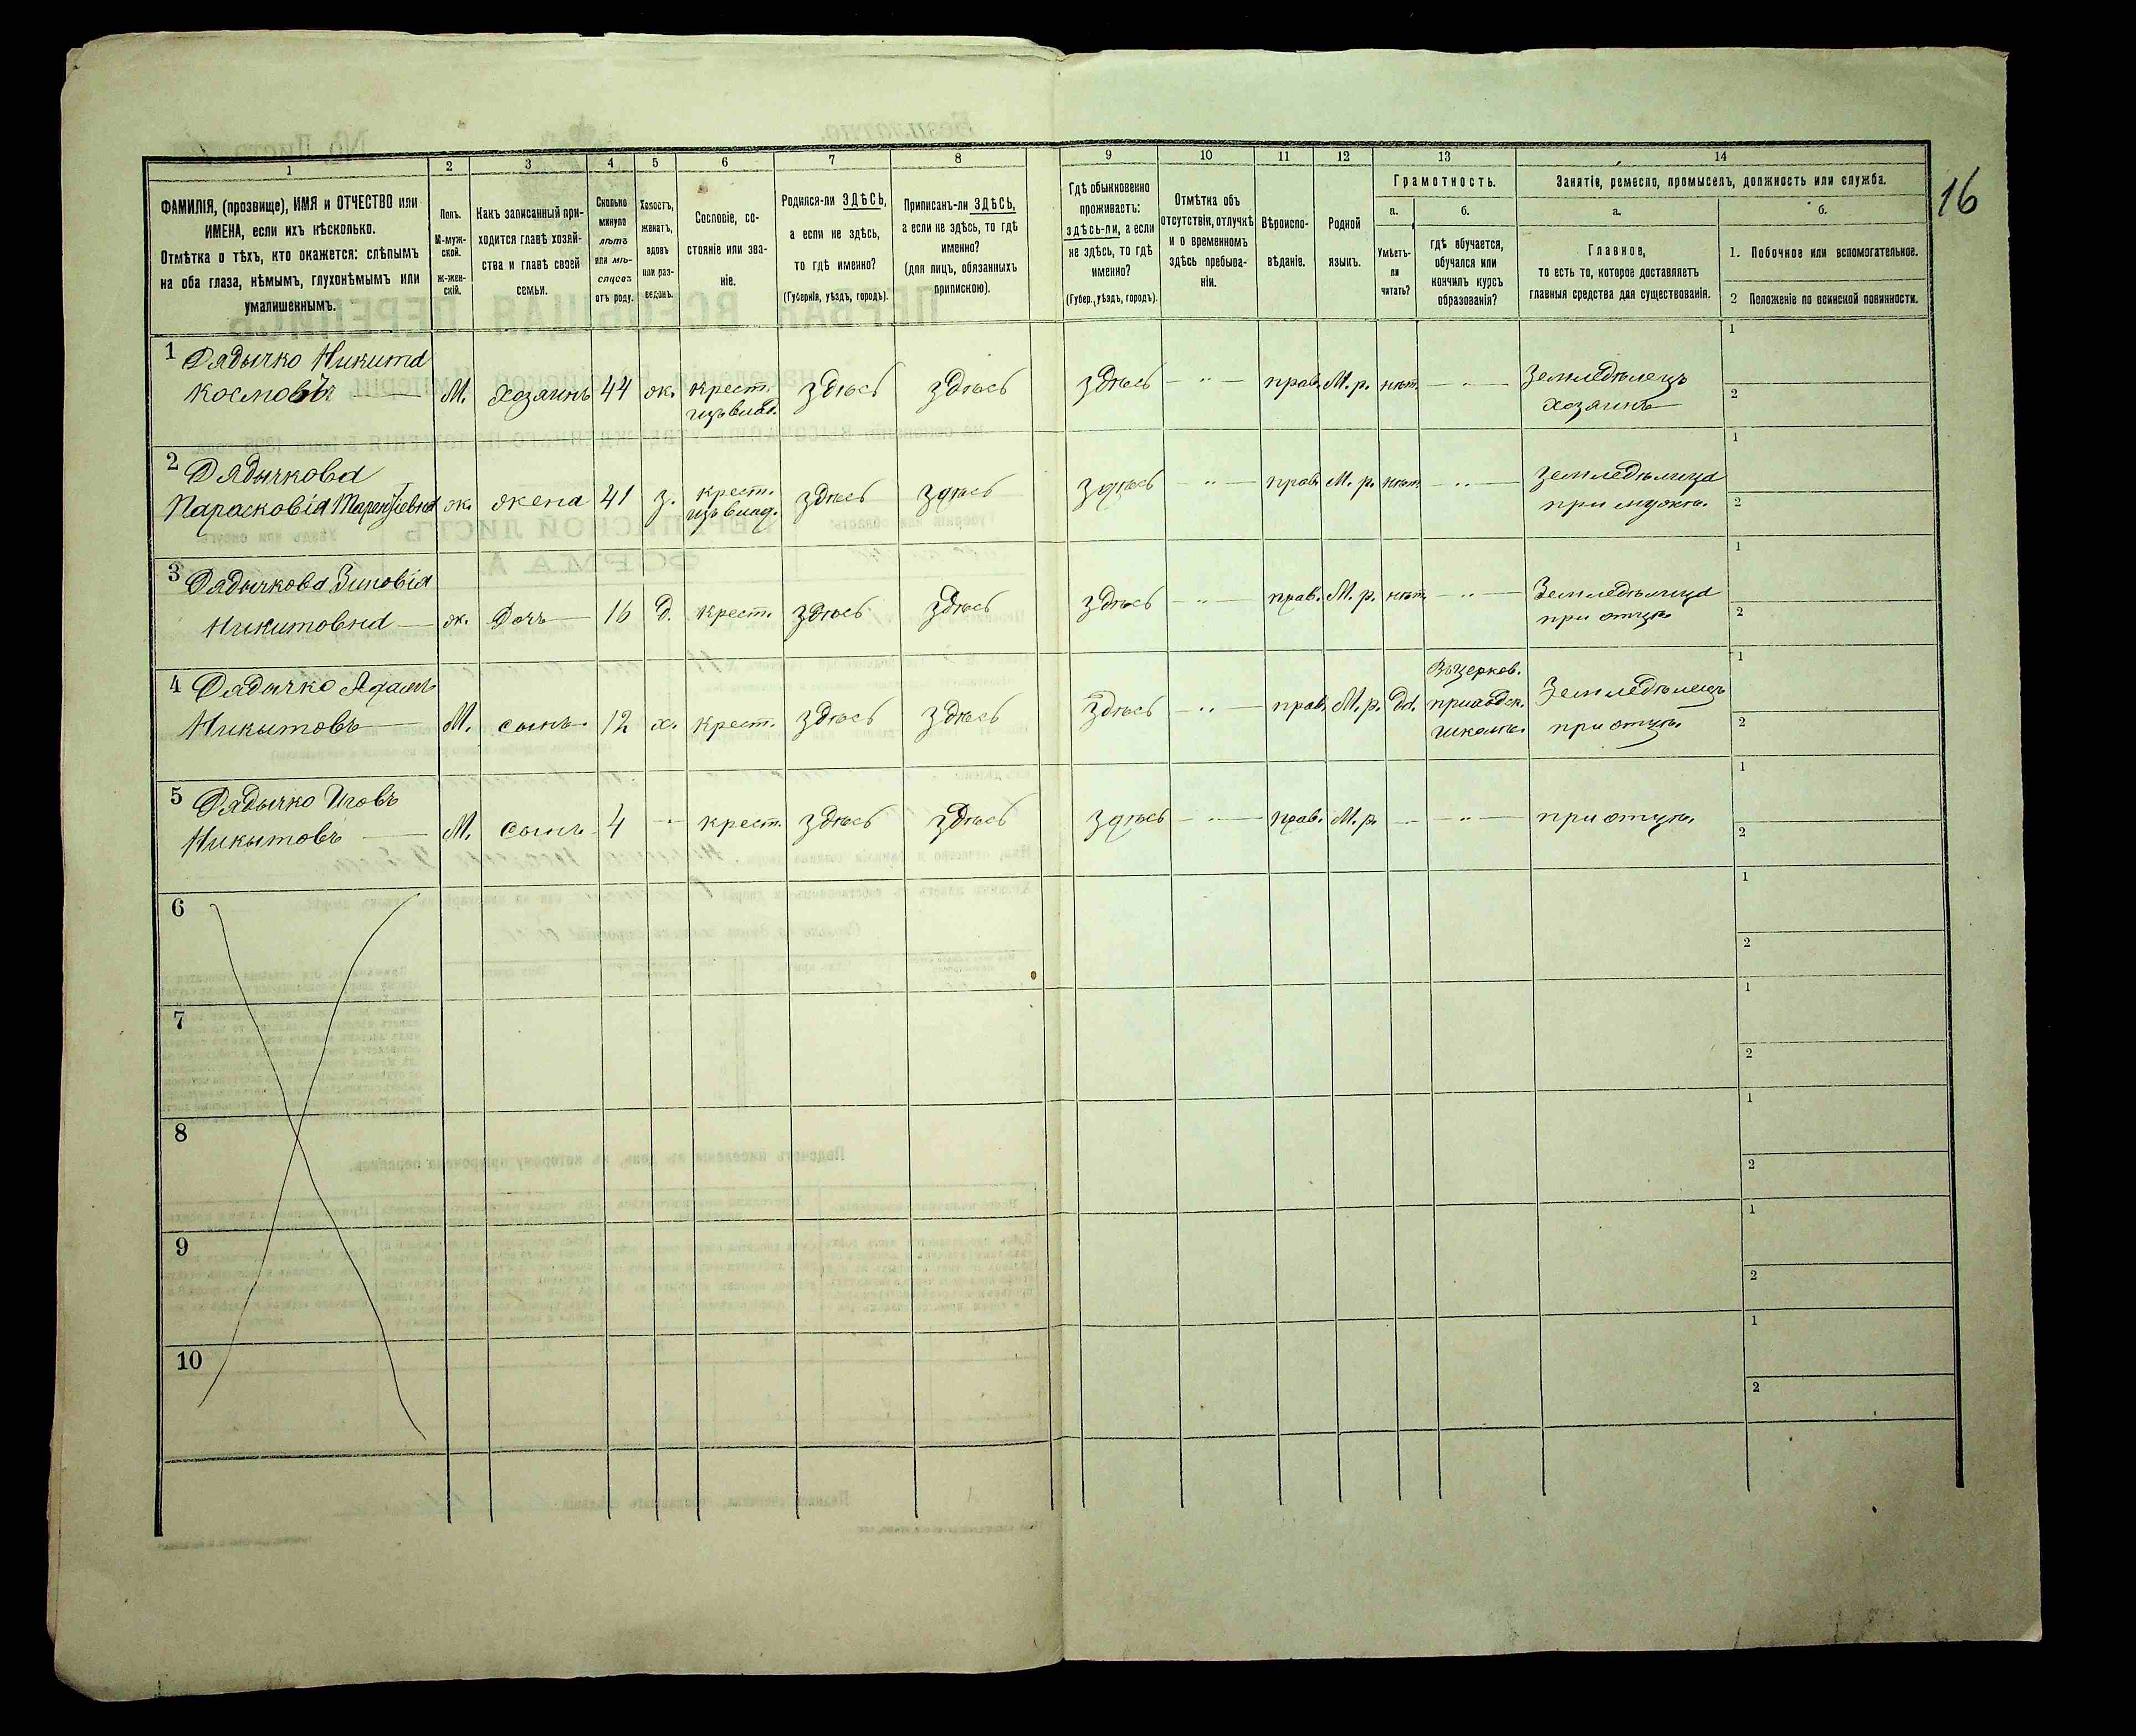 16
1
2
3
4
5
6
7
8
9
10
11
12
13
14
ФАМИЛІЯ, (прозвище), ИМЯ и ОТЧЕСТВО или
ИМЕНА, если ихъ нѣсколько.
Отмѣтка о тѣхъ, кто окажется: слѣпымъ
на оба глаза, нѣмымъ, глухонѣмымъ или
умалишеннымъ.
Полъ.
М-муж-
ской.
ж-жен-
скій.
Какъ записанный при-
ходится главѣ хозяй-
ства и главѣ своей
семьи.
Сколько
минуло
лѣтъ
или мѣ-
сяцевъ
отъ роду.
Холостъ,
женатъ,
вдовъ
или раз-
веденъ.
Сословіе, со-
стояніе или зва-
ніе.
Родился-ли ЗДѢСЬ,
а если не здѣсь,
то гдѣ именно?
(Губернія, уѣздъ, городъ).
Приписанъ-ли ЗДѢСЬ,
а если не здѣсь, то гдѣ
именно?
(для лицъ, обязанныхъ
припискою).
Гдѣ обыкновенно
проживаетъ:
здѣсь-ли, а если
не здѣсь, то гдѣ
именно?
(Губер., уѣздъ, городъ).
Отмѣтка объ
отсутствіи, отлучкѣ
и о временномъ
здѣсь пребыва-
ніи.
Вѣроиспо-
вѣданіе.
Родной
языкъ.
Грамотность.
а.
Умѣетъ-
ли
читать?
б.
гдѣ обучается,
обучался или
кончилъ курсъ
образованія?
Занятіе, ремесло, промыселъ, должность или служба.
а.
Главное,
то есть то, которое доставляетъ
главныя средства для существованія.
б.
1. Побочное или вспомогательное.
2 Положеніе по воинской повинности.
1 Дядычко Никита
Космовъ
М. хозяинъ 44 ж. крест. изъ влад. здѣсь здѣсь здѣсь — " — прав. М. р. нѣт. — " — Земледѣлецъ
хозяинъ
1
2
2 Дядычкова
Парасковія
ж. жена 41 з. крест. изъ влад. здѣсь здѣсь здѣсь — " — прав. М. р. нѣт. — " — земледѣлица
при мужѣ.
1
2
3 Дядычкова Зиновія
Никитовна
ж. дочь 16 д. крест. здѣсь здѣсь здѣсь — " — прав. М. р. нѣт. — " — Земледѣлица
при отцѣ.
1
2
4 Дядычко Адамъ
Никитовъ
М. сынъ 12 х. крест. здѣсь здѣсь здѣсь — " — прав. М. р. да. Въ церков. приходск. школѣ. Земледѣлецъ
при отцѣ.
1
2
5 Дядычко Иовъ
Никитовъ
М. сынъ 4 — крест. здѣсь здѣсь здѣсь — " — прав. М. р. — — " — при отцѣ.
1
2
6
1
2
7
1
2
8
1
2
9
1
2
10
1
2